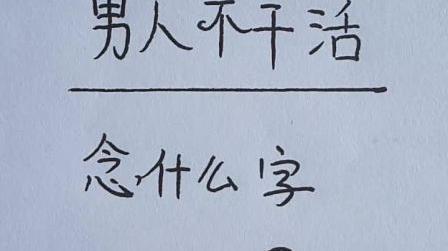 男人不干活
念什么字